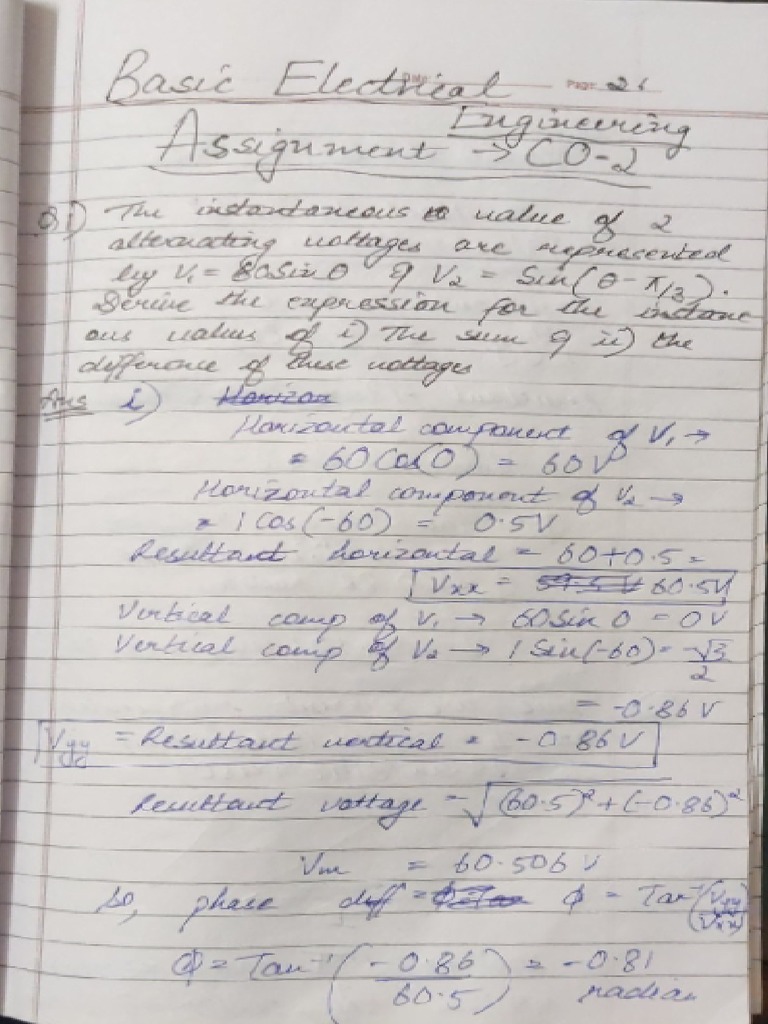 Basic Electrical Page: 21
Engineering
Assignment → CO-2
Q i) The instantaneous value of 2
alternating voltages are represented
by V₁ = 60sinθ & V₂ = Sin(θ-π/3).
Derive the expression for the instane
ous values of i) The sum & ii) the
difference of these voltages
Ans i) Horizon
Horizontal component of V₁ →
= 60 Cos(0) = 60V
Horizontal component of V₂ →
= 1 Cos(-60) = 0.5V
Resultant horizontal = 60+0.5 =
Vxx = 59.5 V 60.5V
Vertical comp of V₁ → 60 Sin 0 = 0V
Vertical comp of V₂ → 1 Sin(-60) = -√3/2
= -0.86 V
Vyy = Resultant vertical = -0.86V
Resultant voltage = √(60.5)²+(-0.86)²
Vm = 60.506 V
So, phase diff = ϕ = Tan⁻¹(Vyy/Vxx)
ϕ = Tan⁻¹(-0.86/60.5) = -0.81
radian